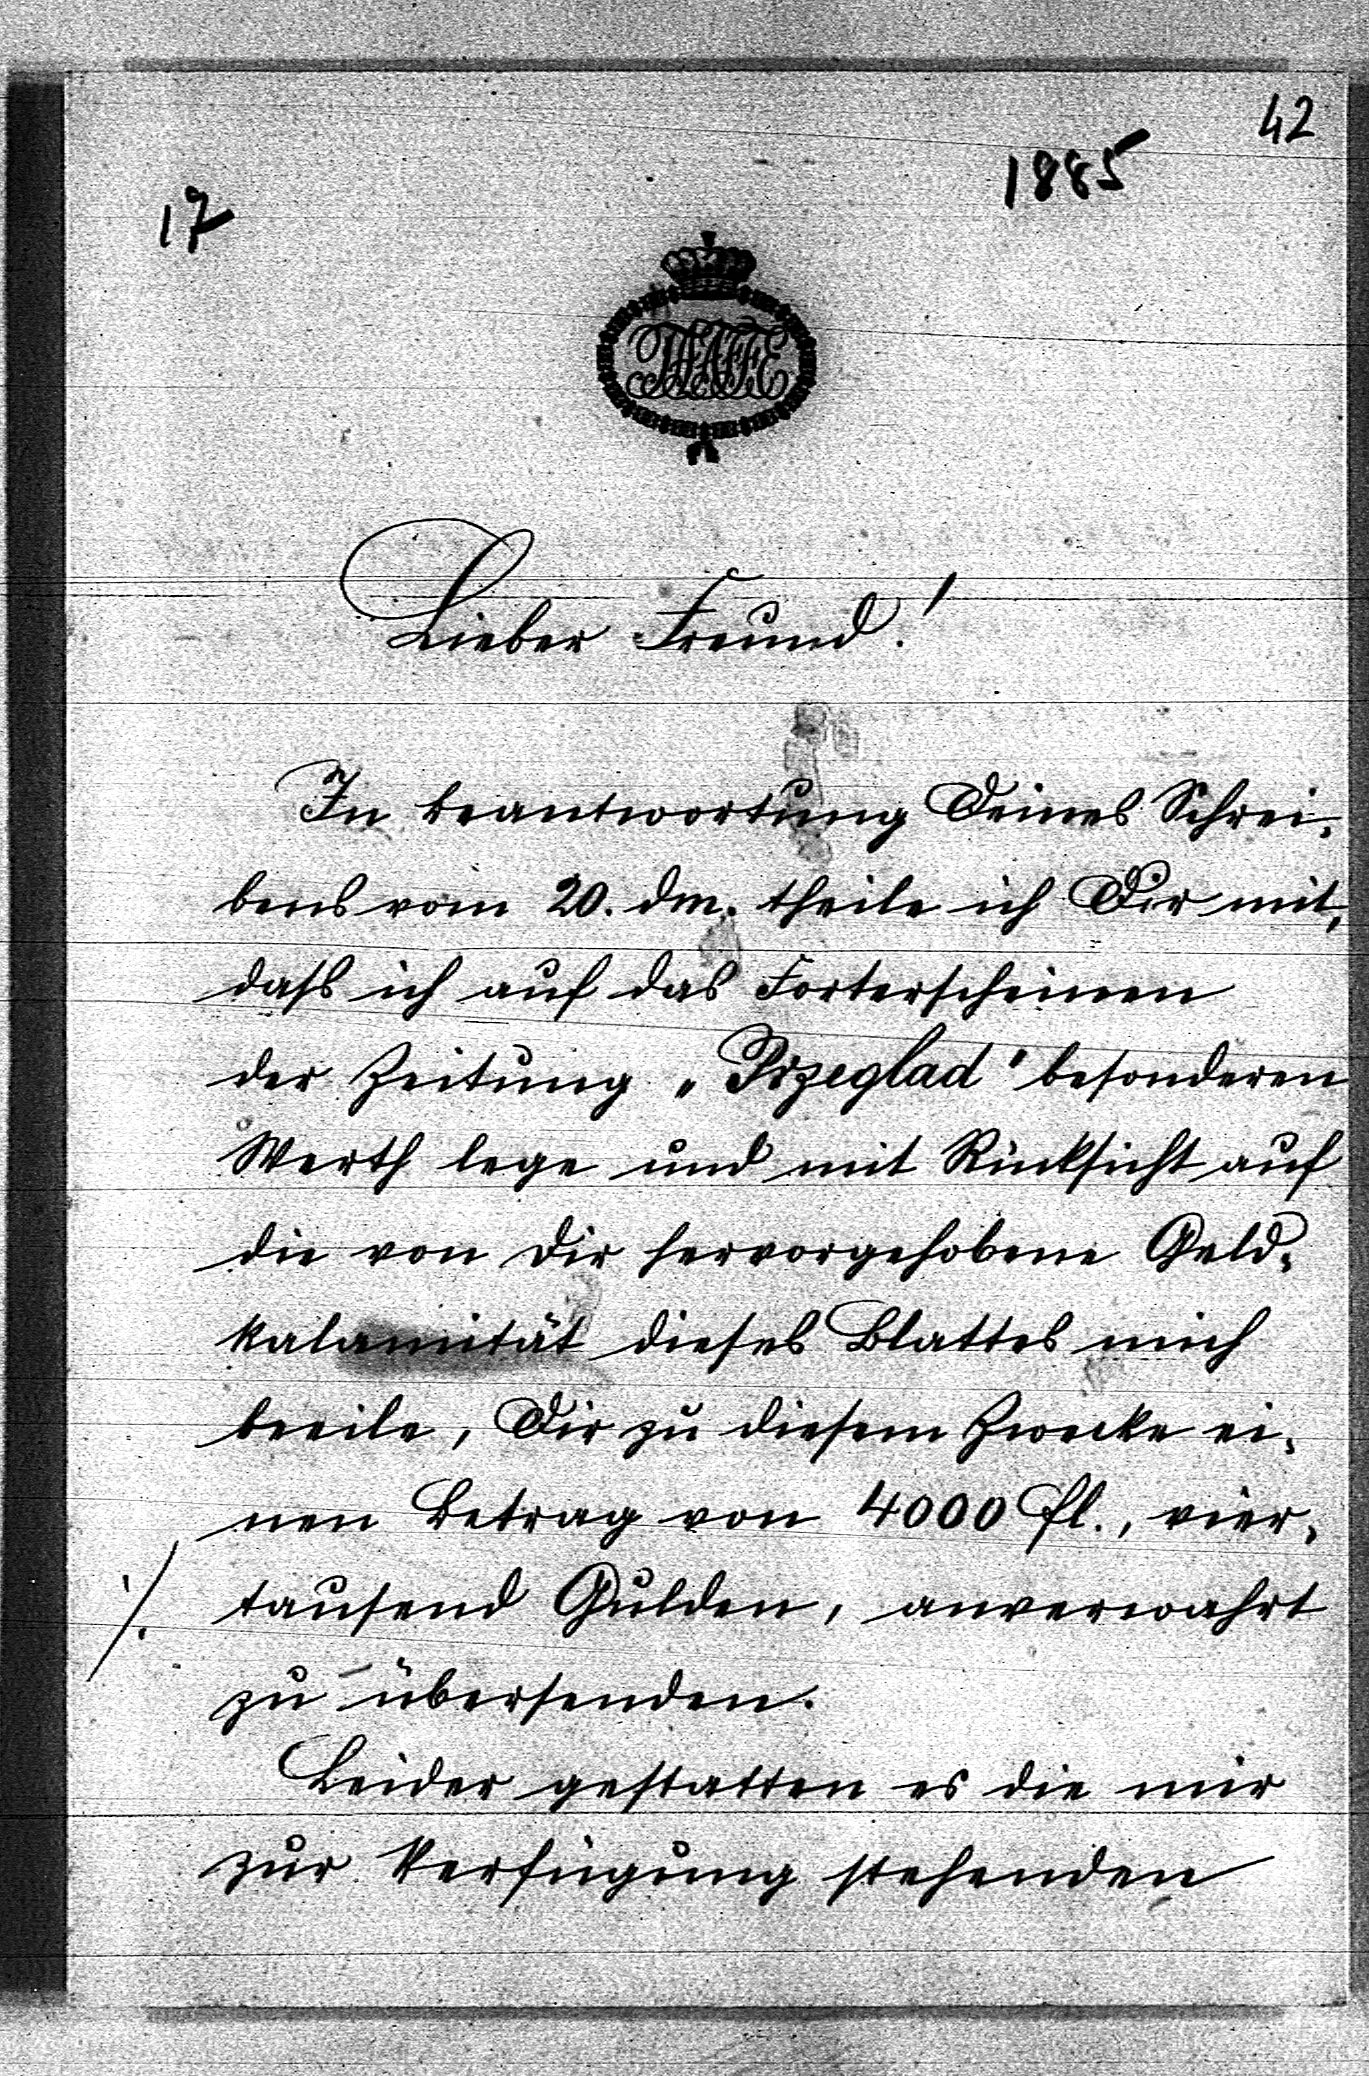 42
1885
17
TAAFFE
Lieber Freund!
In Beantwortung Deines Schrei-
bens vom 20. dm. theile ich Dir mit,
daß ich auf das Forterscheinen
der Zeitung „Przeglad" besonderen
Werth lege und mit Rücksicht auf
die von Dir hervorgehobene Geld-
kalamität dieses Blattes mich
beeile, Dir zu diesem Zwecke ei-
nen Betrag von 4000 fl., vier-
./. tausend Gulden, anverwahrt
zu übersenden.
Leider gestatten es die mir
zur Verfügung stehenden